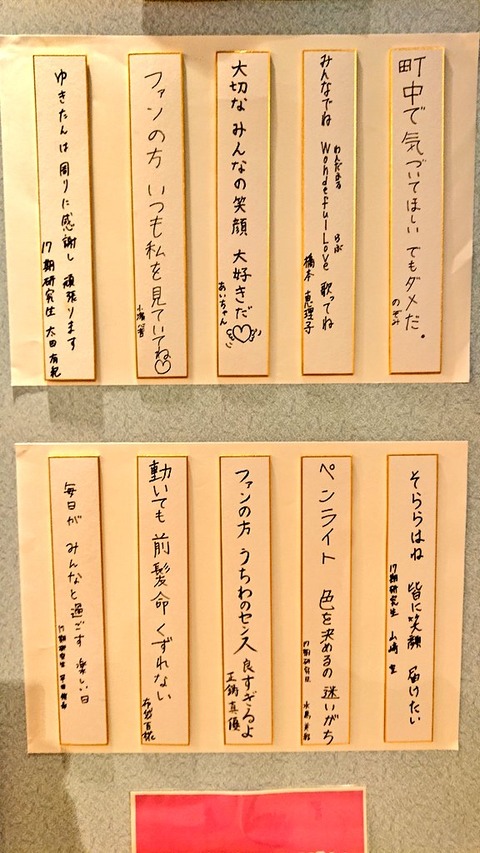 町中で 気づいてほしい でもダメだ。
のぞみ
みんなでね WondefulLove 歌ってね
わんだふる らぶ
橋本 恵理子
大切な みんなの笑顔 大好きだ♡
あいちゃん
ファンの方 いつも私を 見ていてね♡
ゆきたんは 周りに感謝し 頑張ります
17期研究生 太田 有紀
そららはね 皆に笑顔 届けたい
17期研究生 山崎 空
ペンライト 色を決めるの 迷いがち
17期研究生
ファンの方 うちわのセンス 良すぎるよ
正鋳真優
動いても 前髪命 くずれない
布袋百椛
毎日が みんなと過ごす 楽しい日
17期研究生 平田侑希